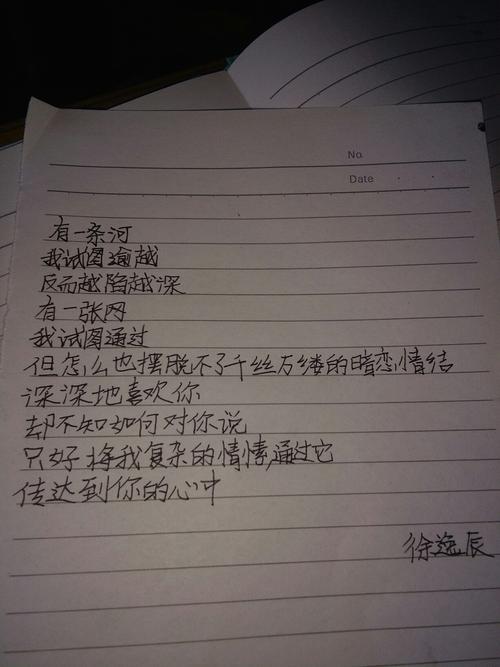 No.
Date
有一条河
我试图逾越
反而越陷越深
有一张网
我试图通过
但怎么也摆脱不了千丝万缕的暗恋情结
深深地喜欢你
却不知如何对你说
只好将我复杂的情愫,通过它
传达到你的心中
徐逸辰